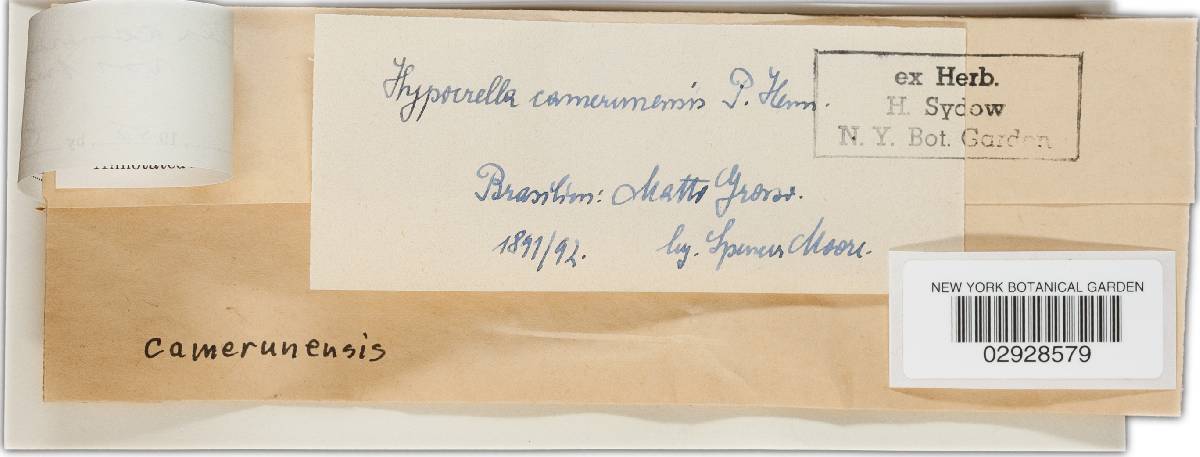 Hypocrella camerunensis P. Henn.
ex Herb.
H. Sydow
N. Y. Bot. Garden
Brasilien: Matto Grosso.
1891/92. leg. Spencer Moore.
Annotated
camerunensis
NEW YORK BOTANICAL GARDEN
02928579